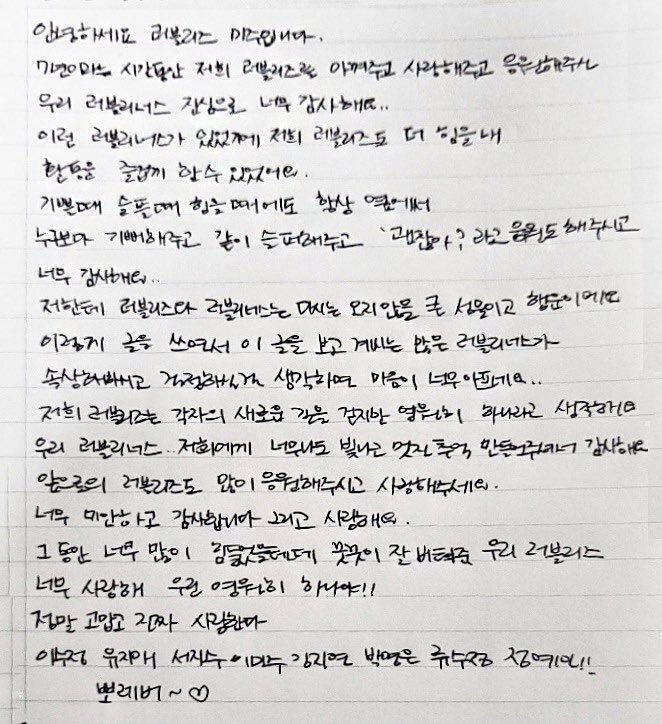 안녕하세요 러블리즈 미주입니다.
7년이라는 시간동안 저희 러블리즈를 아껴주고 사랑해주고 응원해주신
우리 러블리너스 진심으로 너무 감사해요..
이런 러블리너스가 있었기에 저희 러블리즈도 더 힘을 내
활동을 즐겁게 할 수 있었어요.
기쁠때 슬플때 힘들때에도 항상 옆에서
누구보다 기뻐해주고 같이 슬퍼해주고 '괜찮아?'라고 응원도 해주시고
너무 감사해요..
저한테 러블리즈와 러블리너스는 다시는 오지않을 큰 선물이고 행운이에요
이렇게 글을 쓰면서 이 글을 보고 계시는 많은 러블리너스가
속상해하시고 걱정하실걸 생각하면 마음이 너무아프네요..
저희 러블리즈는 각자의 새로운 길을 걷지만 영원히 하나라고 생각해요
우리 러블리너스.. 저희에게 너무나도 빛나고 멋진 추억 만들어주셔서 감사해요
앞으로의 러블리즈도 많이 응원해주시고 사랑해주세요.
너무 미안하고 감사합니다 그리고 사랑해요.
그동안 너무 많이 힘들었을텐데 꿋꿋이 잘 버텨준 우리 러블리즈
너무 사랑해 우린 영원히 하나야!!
정말 고맙고 진짜 사랑한다
이수정 유지애 서지수 이미주 김지연 박명은 류수정 정예인!!
뽀레버~♡